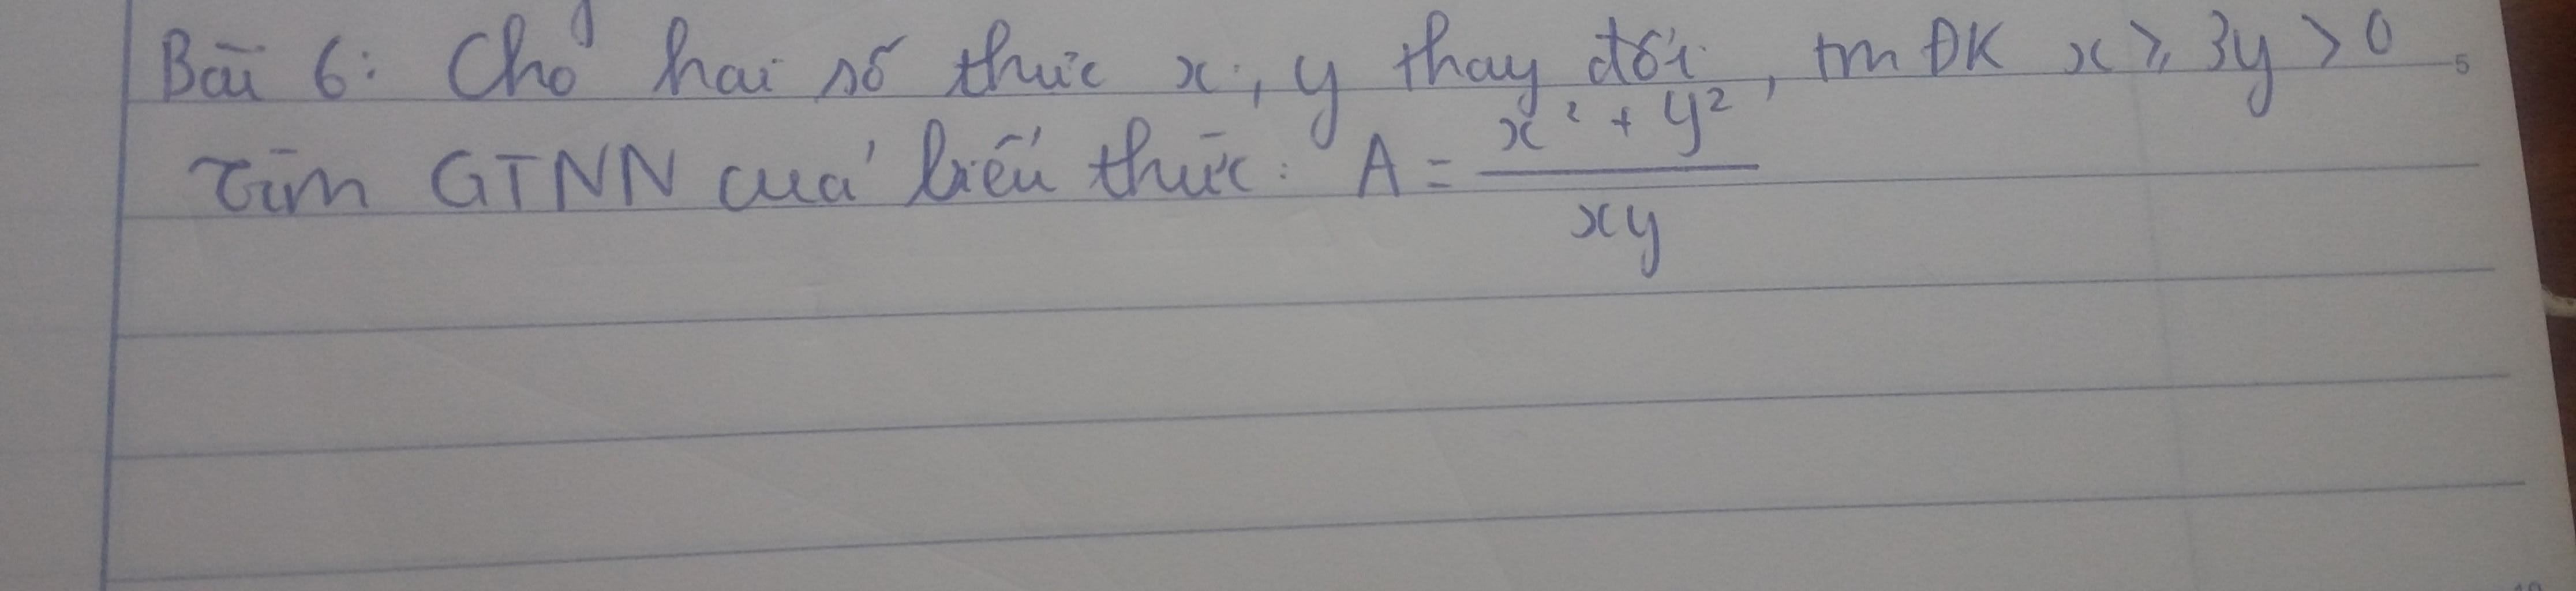 Bài 6: Cho hai số thực x, y thay đổi, tm ĐK x ⩾ 3y > 0
Tìm GTNN của biểu thức: A = \frac{x² + y²}{xy}
5